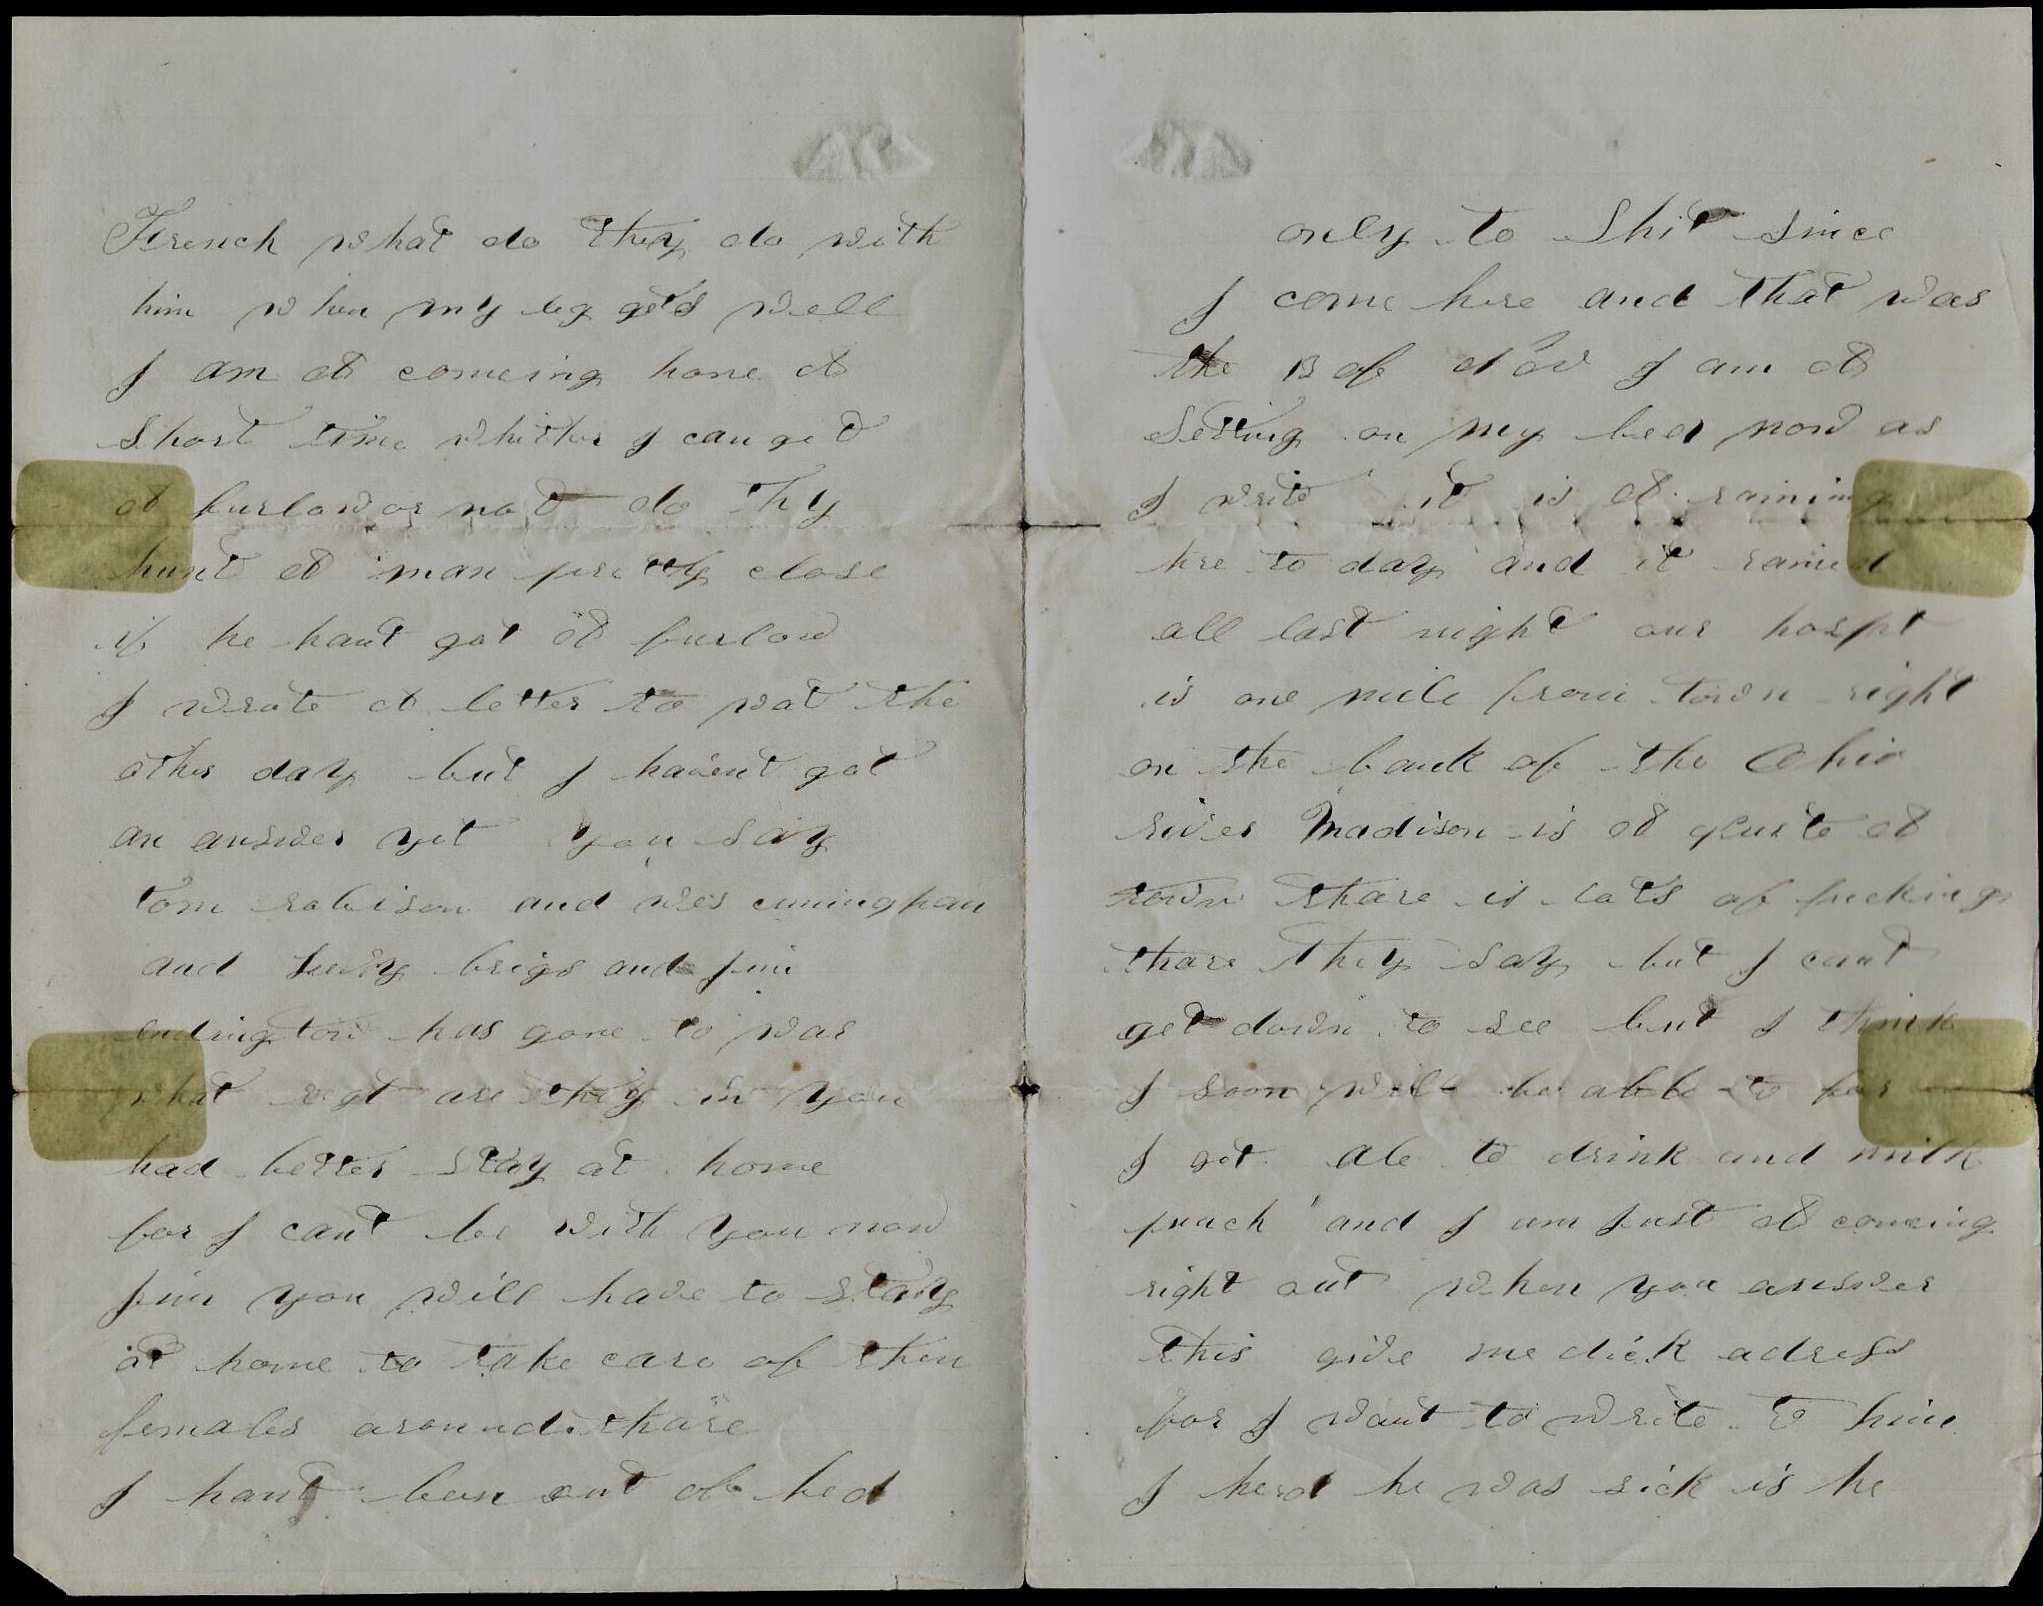 French what do they do with
him when my leg gets well
I am a comeing home a
short time whither I can get
a furlow or not do thy
hunt a man pretty close
if he hant got a furlow
I wrote a letter to wat the
other day but I havent got
an answer yet you say
tom robison and wes cuningham
and brigs and Jim
endington has gone to war
what regt are they in you
had better stay at home
for I cant be with you now
Jim you will have to stay
at home to take care of then
females around thare
I hant ben out of bed
only to Shit since
I come here and that was
the 13 of nov I am a
Setting on my bed now as
I write it is a raining
hre to day and it rained
all last night our hospt
is one mile from town right
on the bank of the Ohio
river Madison is a quite a
town thare is lots of fucking
thare they say but I cant
get down to see but I think
I soon will be able to for
I get ale to drink and milk
punch and I am Just a comeing
right out when you answer
this give me dick adress
for I want to write to him
I herd he was sick is he